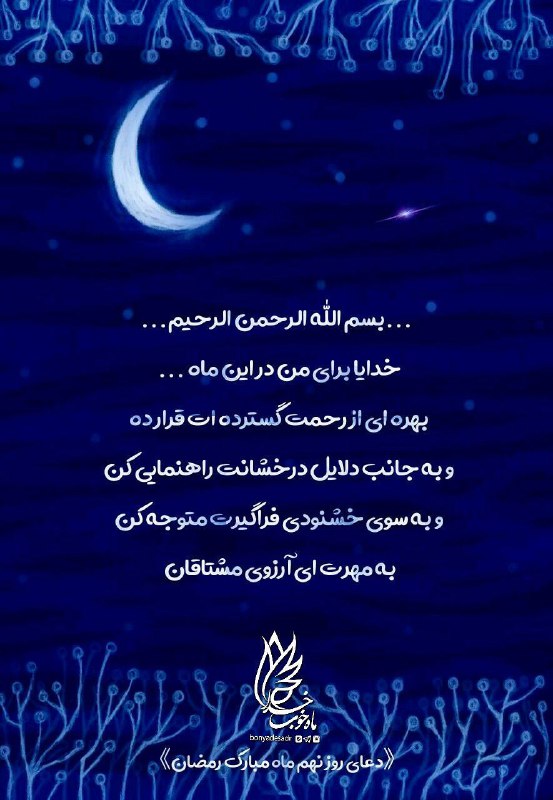 ...بسم الله الرحمن الرحیم...
خدایا برای من در این ماه ...
بهره ای از رحمت گسترده ات قرار ده
و به جانب دلایل درخشانت راهنمایی کن
و به سوی خشنودی فراگیرت متوجه کن
به مهرت ای آرزوی مشتاقان
ماه خوب خدا
bonyadesadr
《دعای روز نهم ماه مبارک رمضان》